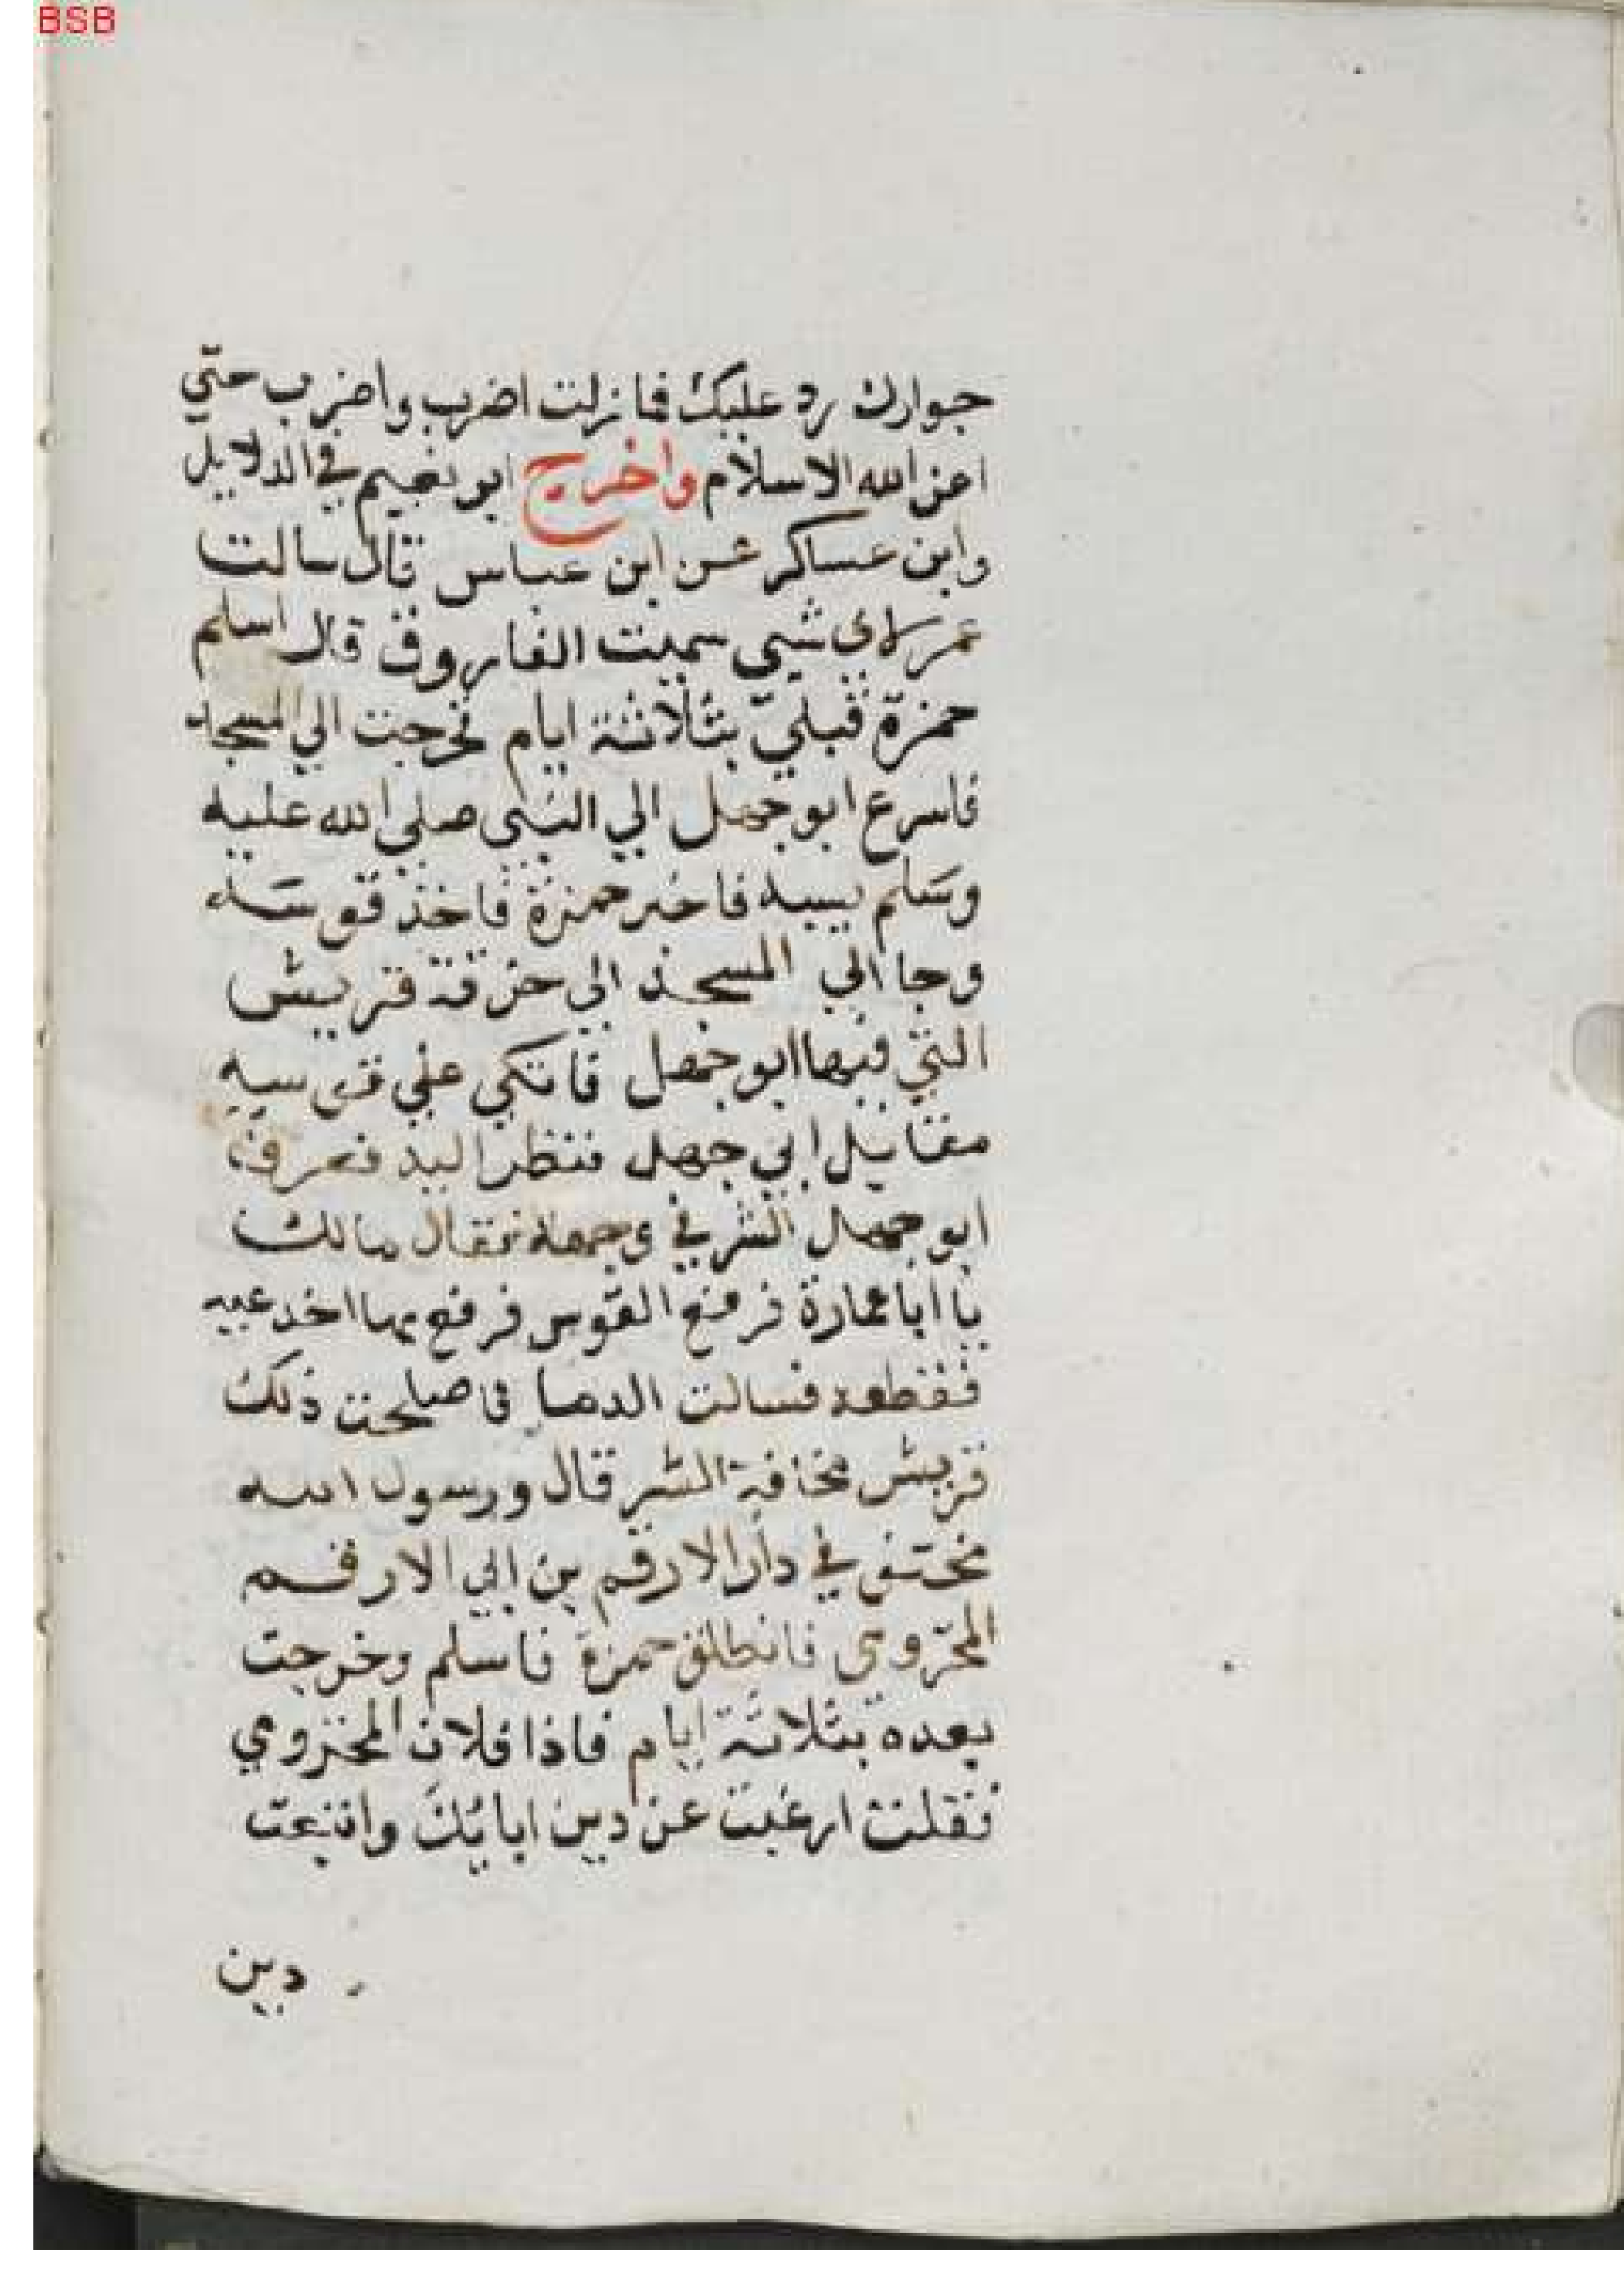 BSB
جوارك رد عليك فما زلت اضرب واضرب حتّي
اعز الله الاسلام واخرج ابو نعيم في الدلايل
وابن عساكر عن ابن عباس قال سالت
عمر لاي شيي سميت الفاروق قال اسلم
حمزة قبليّ بثلاثة ايام فخرجت الي المسجد
فاسرع ابو جهل الي النبي صلي الله عليه
وسلم يسبه فاخبر حمزة فاخذ قوسه
وجا الي المسجد الي حزقة قريش
التي فيها ابو جهل فاتكي علي قوسه
مقابل ابي جهل فنظر اليه فعرف
ابو جهل الشر في وجهه فقال مالك
يا ابا عمارة فرفع القوس فرفع بها اخدعيه
فقطعه فسالت الدما فاصلحت ذلك
قريش مخافة الشر قال ورسول الله
مختف في دار الارقم بن ابي الارقم
المخزومي فانطلق حمزة فاسلم وخرجت
بعده بثلاثة ايام فاذا فلان المخزومي
فقلت ارغبت عن دين ابايك واتبعت
دين